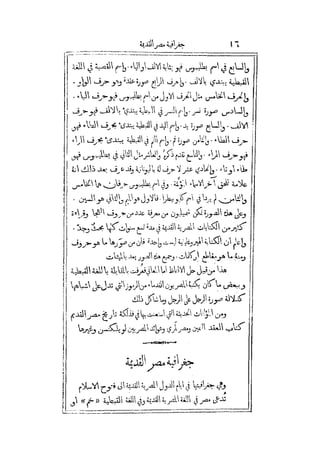 ١٦ جغرافية مصر القديمة
والسابع في اسم بطليوس فهو بمثابة الالف او الياء. واسم القصبة في اللغة
القبطية يبتدئ بالالف. والحرف الرابع صورة عقدة وهو حرف الواو.
والحرف الخامس مثل الحرف الاول من اسم بطليوس فهو حرف الباء.
والسادس صورة نسر. واسم النسر في القبطية يبتدئ بالالف فهو حرف
الالف. والسابع صورة يد. واسم اليد في القبطية يبتدئ بحرف الطاء فهو
حرف الطاء. والثامن صورة فم. واسم الفم في القبطية يبتدئ بحرف الراء
فهو حرف الراء. والتاسع تقدم ذكره والعاشر مثل الثاني في بطليوس فهو
طاء او تاء. والحادي عشر لا حرف له باليونانية وقد عرف بعد ذلك انه
علامة تلحق آخر الاسماء المؤنثة. وفي اسم بطليوس حرفان هما الخامس
والثامن لم يردا في اسم كليوبطرا فالاول هو الميم والثاني هو السين.
وعلى هذه الصورة تمكن شمبليون من معرفة عدد من حروف الهجا وقراءة
كثير من الكتابات المصرية القديمة في مدة تسع سنوات كلها بحث وجد.
واعلم ان الكتابة الهيروغليفية ليست واحدة فان من صورها ما هو حروف
ومنه ما هو مقاطع او كلمات. وجميع هذه الصور يعد بالمئات
هذا من قبيل حل الالفاظ اما المعاني فعرفت بالمقابلة باللغة القبطية
وبعض ما كان يكتبه المصريون القدماء من الرموز التي تدل على اشباهها
كدلالة صورة الرجل على الرجل وما شاكل ذلك
ومن المؤلفات الحديثة التي استعنت بها في فذلكة تاريخ مصر القديم
كتاب العقد الثمين ومصر لمري وقدماء المصريين لويلكنسن وغيرها
جغرافية مصر القديمة
وهي جغرافيتها في ايام الدول المصرية القديمة الى فتوح الاسلام
تدعى مصر في اللغة المصرية القديمة وفي اللغة القبطية «خم» او